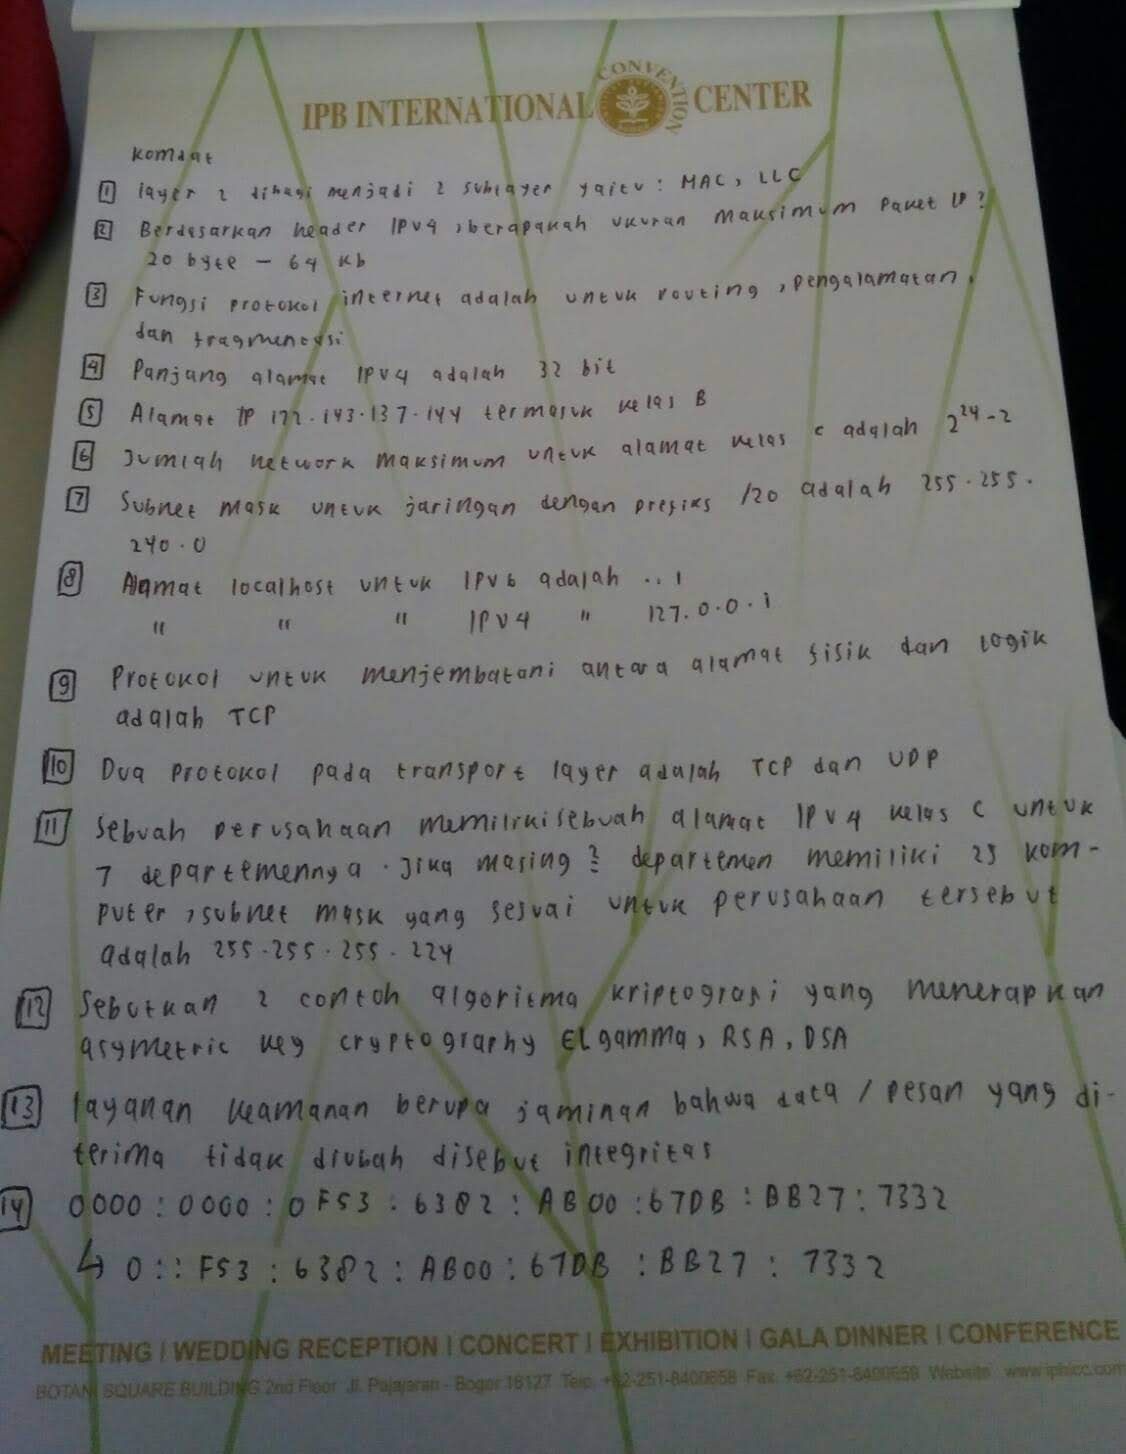 IPB INTERNATIONAL CONVENTION CENTER
Komdat
1 layer 2 dibagi menjadi 2 sublayer yaitu : MAC, LLC
2 Berdasarkan header IPv4, berapakah ukuran maksimum paket IP ?
20 byte - 64 kb
3 Fungsi protokol internet adalah untuk routing, pengalamatan,
dan fragmentasi
4 Panjang alamat IPv4 adalah 32 bit
5 Alamat IP 172.143.137.144 termasuk kelas B
6 Jumlah network maksimum untuk alamat kelas c adalah 2^24-2
7 Subnet mask untuk jaringan dengan prefiks /20 adalah 255.255.
240.0
8 Alamat localhost untuk IPv6 adalah ..1
" " " IPv4 " 127.0.0.1
9 Protokol untuk menjembatani antara alamat fisik dan logik
adalah TCP
10 Dua protokol pada transport layer adalah TCP dan UDP
11 Sebuah perusahaan memiliki sebuah alamat IPv4 kelas C untuk
7 departemennya. Jika masing2 departemen memiliki 25 kom-
puter, subnet mask yang sesuai untuk perusahaan tersebut
adalah 255.255.255.224
12 Sebutkan 2 contoh algoritma kriptografi yang menerapkan
asymetric key cryptography ELgamma, RSA, DSA
13 layanan keamanan berupa jaminan bahwa data / pesan yang di-
terima tidak diubah disebut integritas
14 0000:0000:0F53:6382:AB00:67DB:BB27:7332
↳ 0::F53:6382:AB00:67DB:BB27:7332
MEETING | WEDDING RECEPTION | CONCERT | EXHIBITION | GALA DINNER | CONFERENCE
BOTANI SQUARE BUILDING 2nd Floor Jl. Pajajaran - Bogor 16127 Telp. +62-251-8400658 Fax. +62-251-8400659 Website www.ipbicc.com